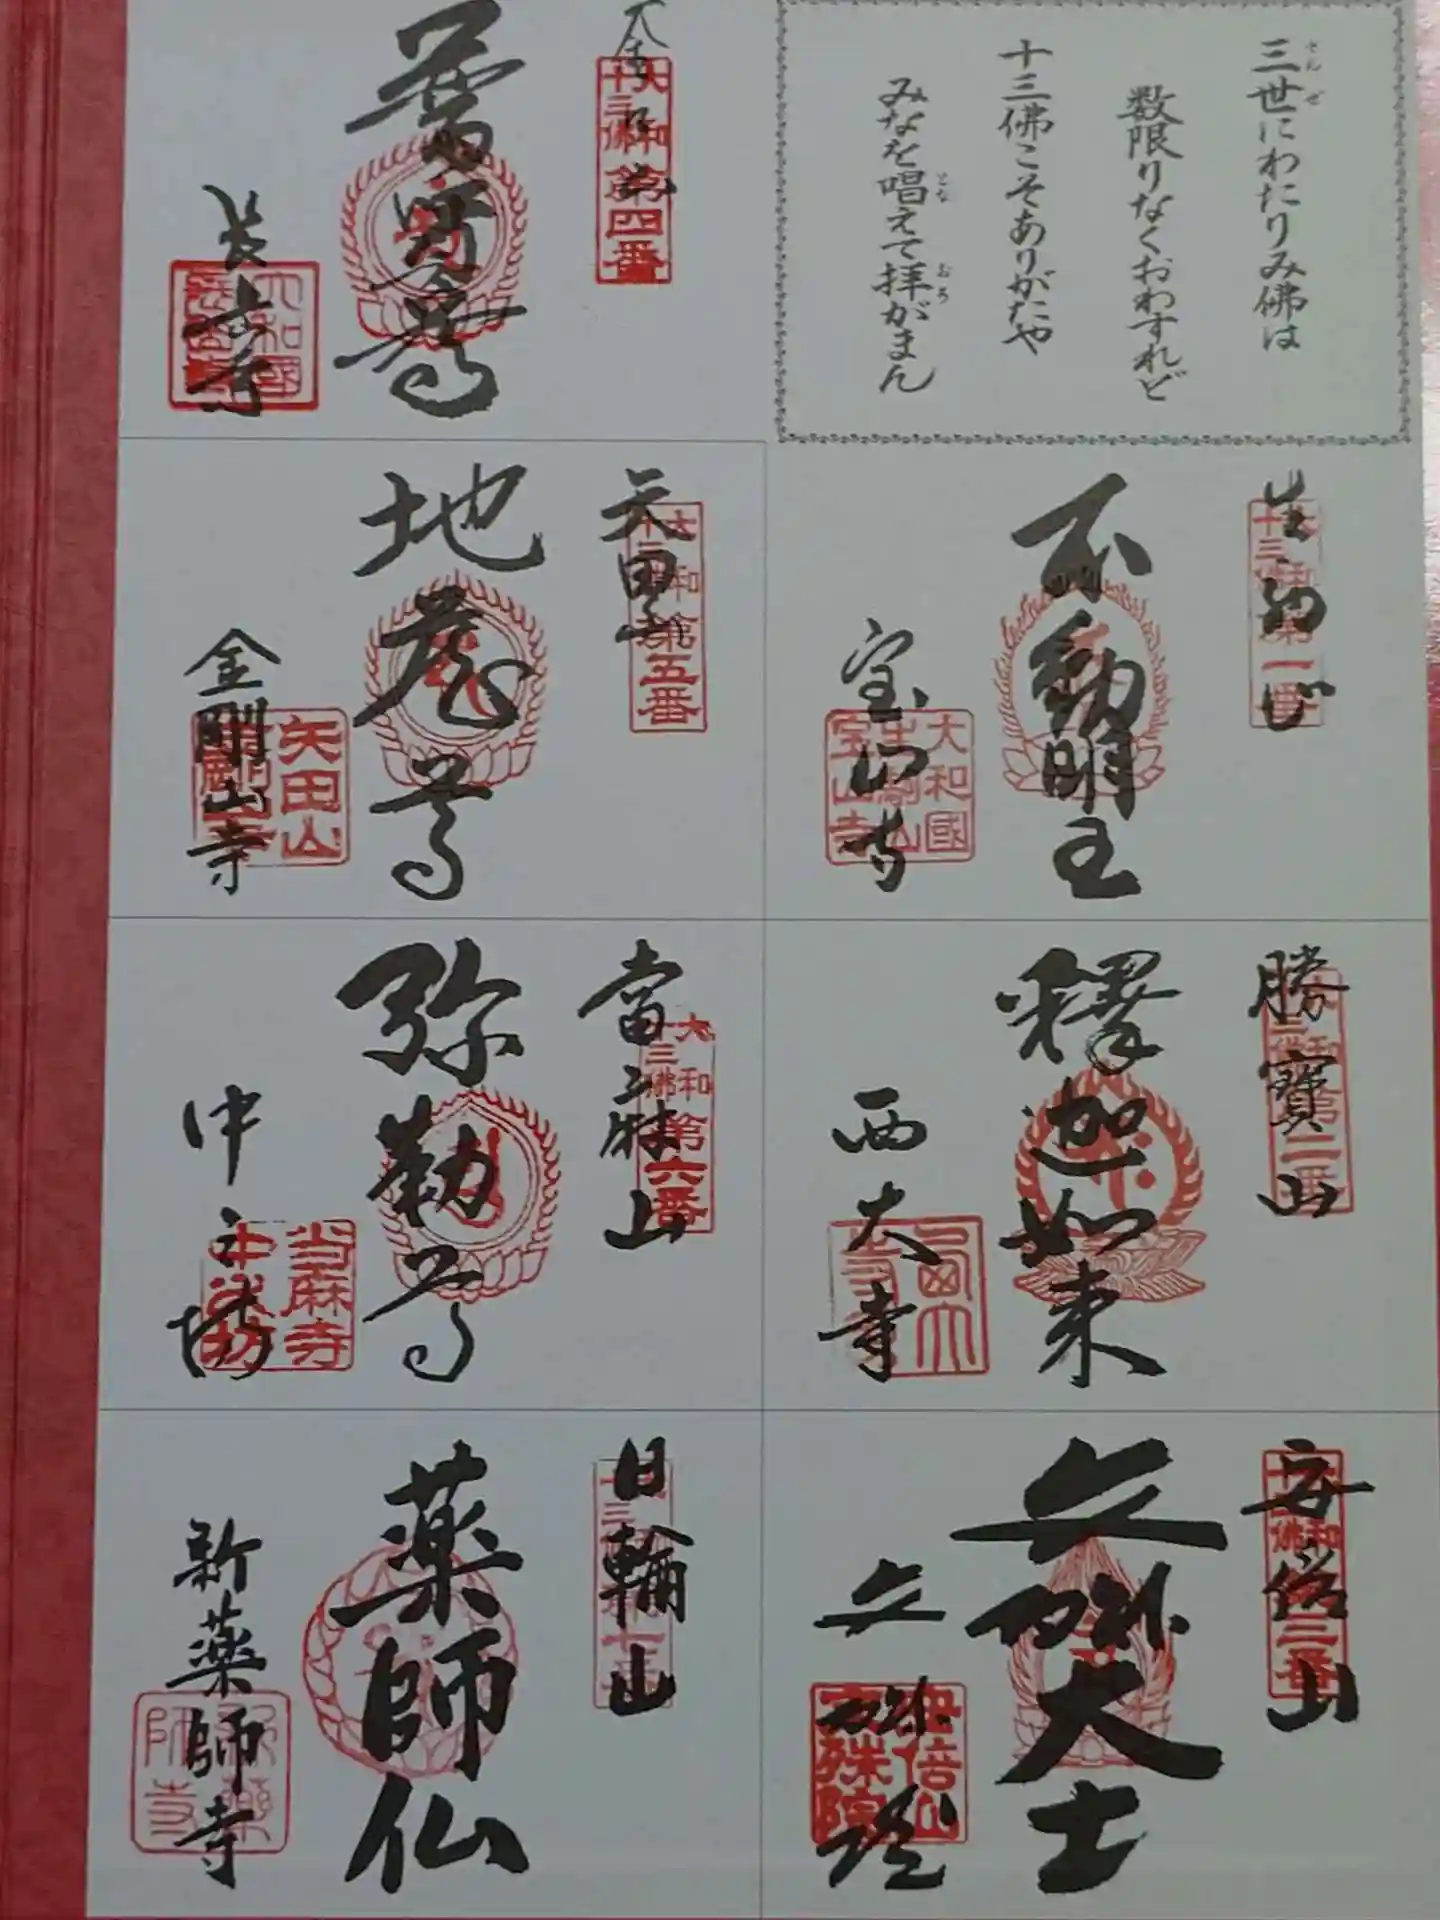 三世にわたりみ佛は
せんぜ
数限りなくおわすれど
十三佛こそありがたや
みなを唱えて拝がまん
とな
おろ
生駒山
大和十三佛第一番
不動明王
宝山寺
大和國生駒山宝山寺
勝寶山
大和十三佛第二番
釋迦如来
西大寺
安倍山
大和十三佛第三番
文殊大士
文殊院
安倍山文殊院
大和十三佛第四番
普賢尊
長岳寺
矢田山
大和十三佛第五番
地蔵尊
金剛山寺
矢田山
當麻山
大和十三佛第六番
弥勒尊
中之坊
当麻寺中之坊
日輪山
薬師仏
新薬師寺
新薬師寺